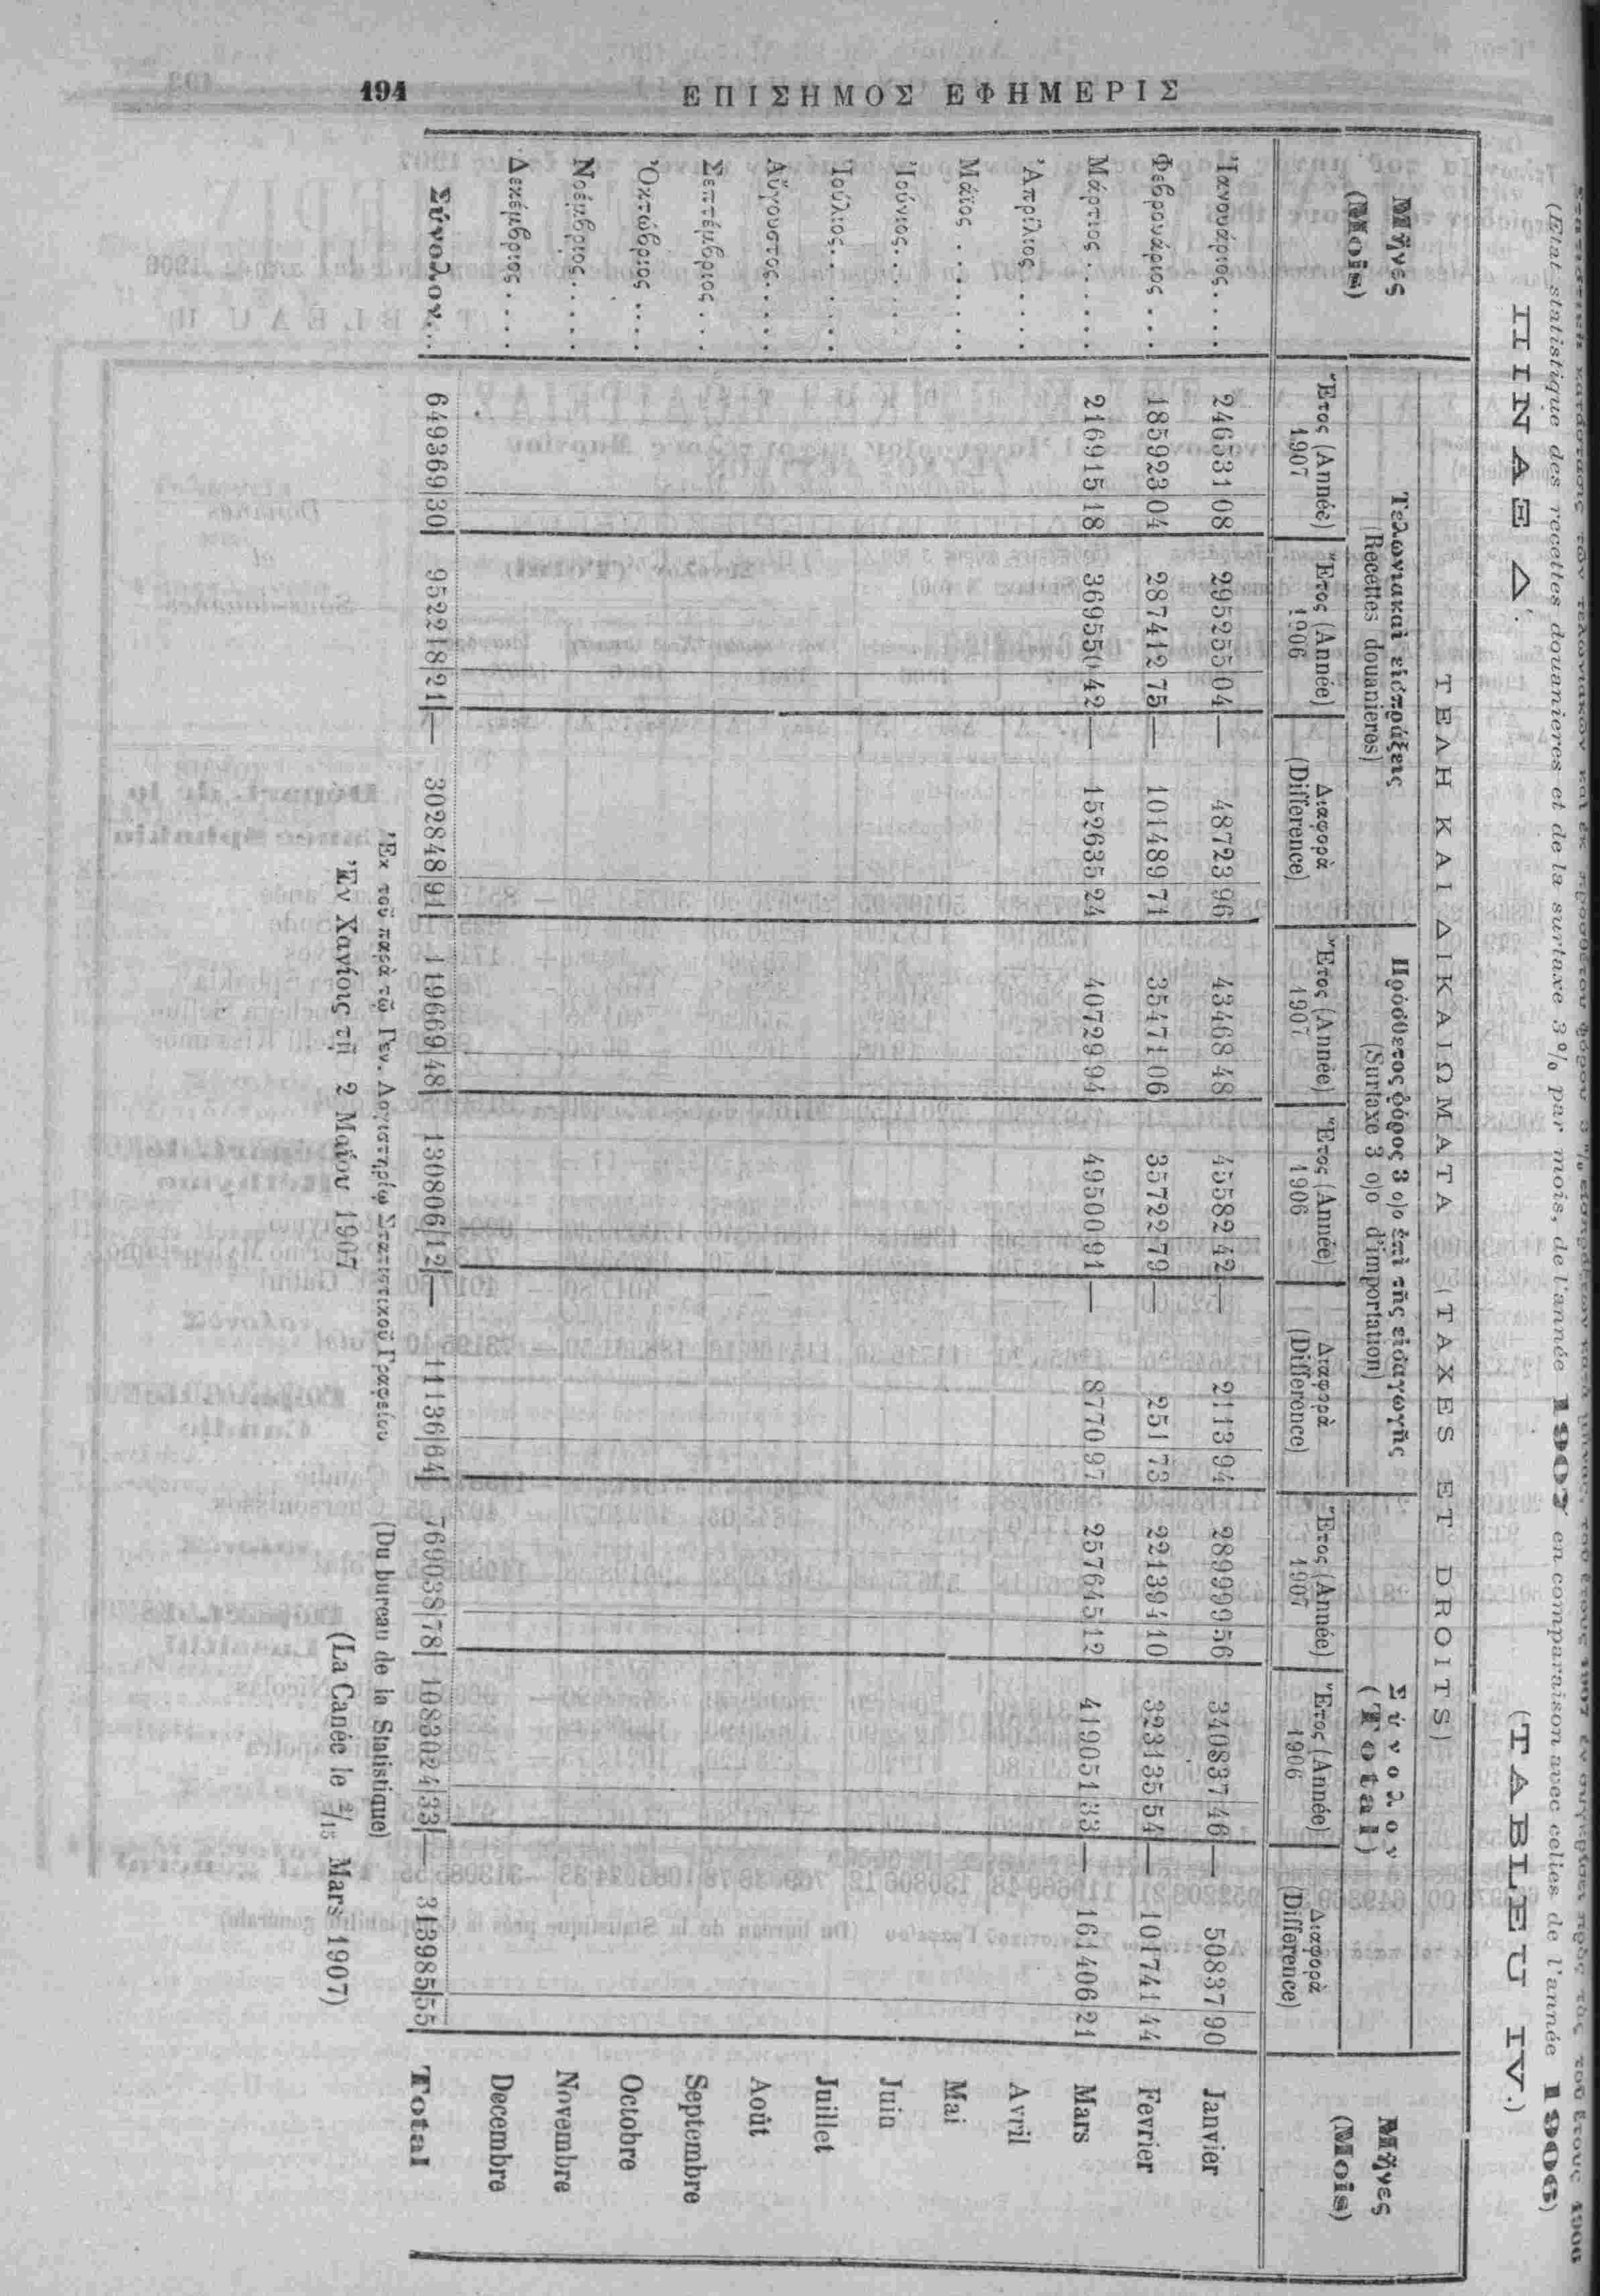 194
ΕΠΙΣΗΜΟΣ ΕΦΗΜΕΡΙΣ
ΠΙΝΑΞ Δ΄. (TABLEU IV.)
(Etat statistique des recettes douanieres et de la surtaxe 3% par mois, de l'année 1907 en comparaison avec celles de l'année 1906)
ΤΕΛΗ ΚΑΙ ΔΙΚΑΙΩΜΑΤΑ (TAXES ET DROITS)
Μῆνες (Mois) Τελωνιακαὶ εἰσπράξεις (Recettes douanieres) Πρόσθετος φόρος 3 ο)ο ἐπὶ τῆς εἰσαγωγῆς (Surtaxe 3 o)o d'importation) Σύνολον (Total) Μῆνες (Mois)
Ἔτος (Année) 1907 Ἔτος (Année) 1906 Διαφορὰ (Difference) Ἔτος (Année) 1907 Ἔτος (Année) 1906 Διαφορὰ (Difference) Ἔτος (Année) 1907 Ἔτος (Année) 1906 Διαφορὰ (Difference)
Ἰανουάριος.... 246531 08 295255 04 — 48723 96 43468 48 45582 42 — 2113 94 289999 56 340837 46 — 50837 90 Janvier
Φεβρουάριος... 185923 04 287412 75 — 101489 71 35471 06 35722 79 — 251 73 221394 10 323135 54 — 101741 44 Fevrier
Μάρτιος...... 216915 18 369550 42 — 152635 24 40729 94 49500 91 — 8770 97 257645 12 419051 33 — 161406 21 Mars
Ἀπρίλιος..... Avril
Μάϊος ...... Mai
Ἰούνιος..... Juin
Ἰούλιος..... Juillet
Αὔγουστος.... Août
Σεπτέμβριος... Septembre
Ὀκτώβριος .... Octobre
Νοέμβριος.... Novembre
Δεκέμβριος.... Decembre
Σύνολον... 649369 30 952218 21 — 302848 91 119669 48 130806 12 — 11136 64 769038 78 1083024 33 — 313985 55 Total
Ἐκ τοῦ παρὰ τῷ Γεν. Λογιστηρίῳ Στατιστικοῦ Γραφείου (Du bureau de la Statistique)
Ἐν Χανίοις τῇ 2 Μαΐου 1907 (La Canée le 2/15 Mars 1907)